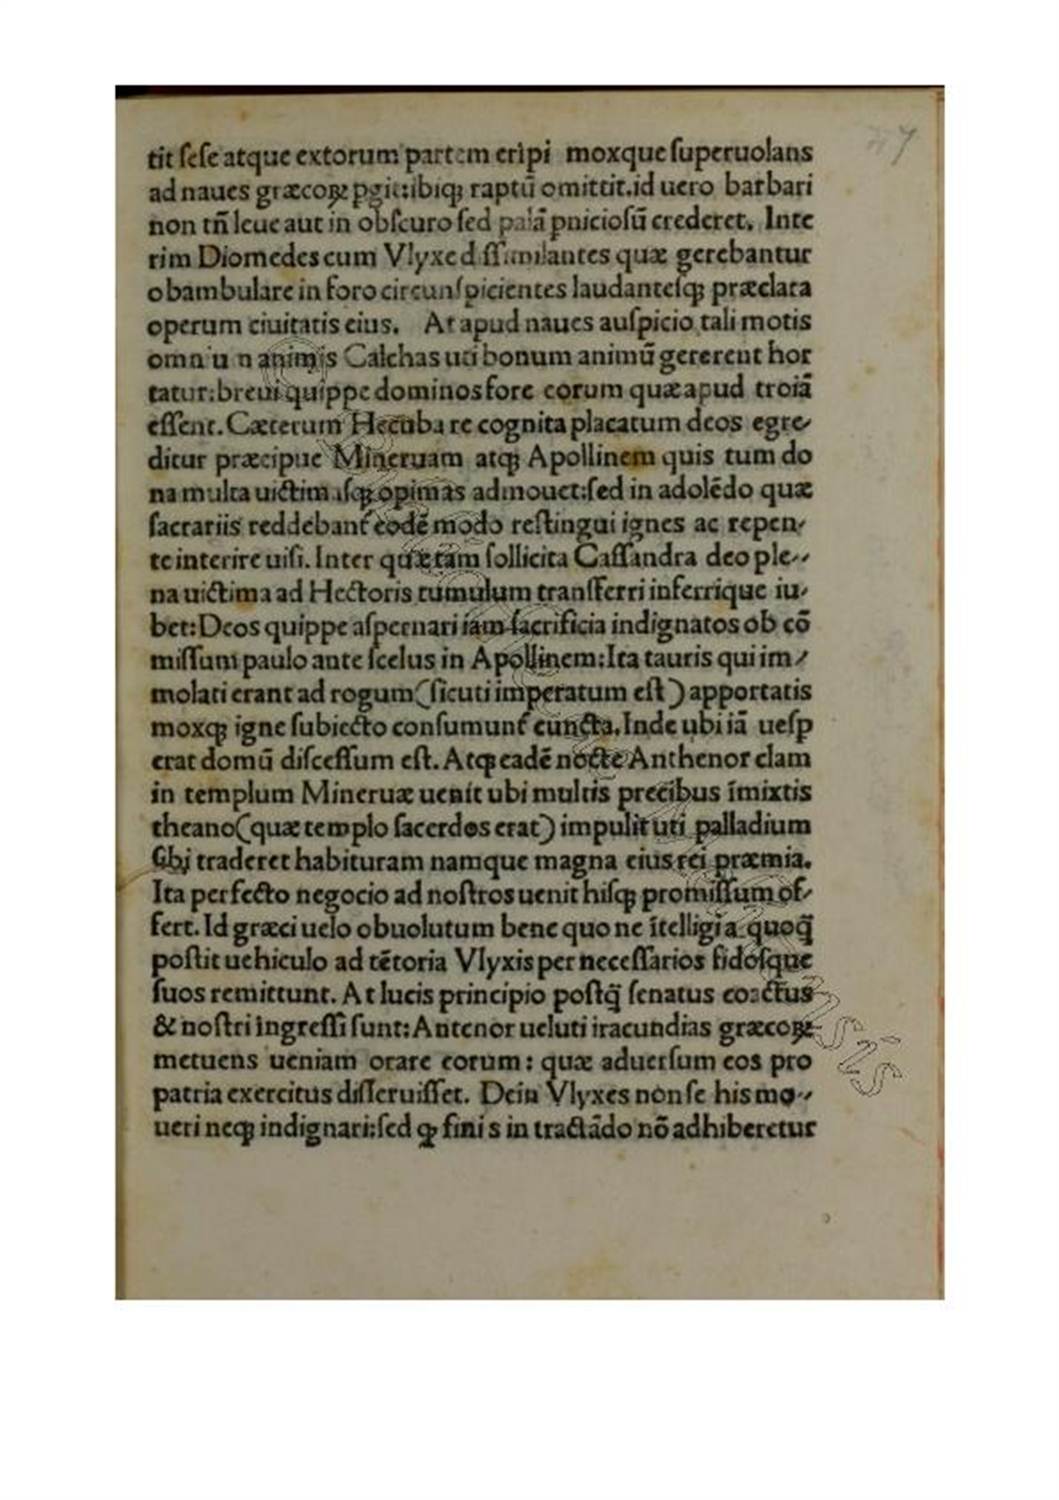 77
tit ſeſe atque extorum partem eripi moxque ſuperuolans
ad naues græcoꝝ ꝑgit:ibiqꝫ raptū omittit.id uero barbari
non tñ leue aut in obſcuro ſed palā ꝑnicioſū crederet. Inte
rim Diomedes cum Vlyxe diſſimilantes quæ gerebantur
obambulare in foro circunſpicientes laudanteſqꝫ præclara
operum ciuitatis eius. At apud naues auſpicio tali motis
omniu n animis Calchas uti bonum animū gererent hor
tatur:breui quippe dominos fore eorum quæ apud troiā
eſſent. Cæterum Hecuba re cognita placatum deos egre⸗
ditur præcipue Mineruam atqꝫ Apollinem quis tum do
na multa uictimaſqꝫ opimas admouet:ſed in adolēdo quæ
ſacrariis reddebant̄ eodē modo reſtingui ignes ac repen⸗
te interire uiſi. Inter quæ tam ſollicita Caſſandra deo ple⸗
na uictima ad Hectoris tumulum transferri inferrique iu⸗
bet:Deos quippe aſpernari iam ſacrificia indignatos ob cō
miſſum paulo ante ſcelus in Apollinem:Ita tauris qui im⸗
molati erant ad rogum(ſicuti imperatum eſt)apportatis
moxqꝫ igne ſubiecto conſumunt̄ cuncta.Inde ubi iā ueſp
erat domū diſceſſum eſt. Atqꝫ eadē nocte Anthenor clam
in templum Mineruæ uenit ubi multis precibus īmixtis
theano(quæ templo ſacerdos erat)impulit uti palladium
ſibi traderet habituram namque magna eius rei præmia.
Ita perfecto negocio ad noſtros uenit hiſqꝫ promiſſum of⸗
fert. Id græci uelo obuolutum bene quo ne ītelligi a quoq̄
poſtit uehiculo ad tētoria Vlyxis per neceſſarios fidoſque
ſuos remittunt. At lucis principio poſtq̄ ſenatus coactus
& noſtri ingreſſi ſunt:Antenor ueluti iracundias græcoꝝ
metuens ueniam orare eorum: quæ aduerſum eos pro
patria exercitus diſſeruiſſet. Dein Vlyxes non ſe his mo⸗
ueri neqꝫ indignari:ſed qꝫ finis in tractādo nō adhiberetur